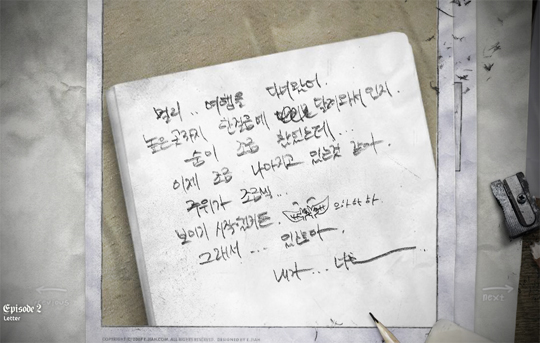 멀리.. 여행을 다녀왔어.
높은곳까지 한걸음에 달려와서 인지.
숨이 조금 찼었는데...
이제 조금 나아지고 있는것 같아.
주위가 조금씩...
보이기 시작했거든. 으하하하.
그래서... 있잖아.
내가... 너
Episode 2
Letter
Next